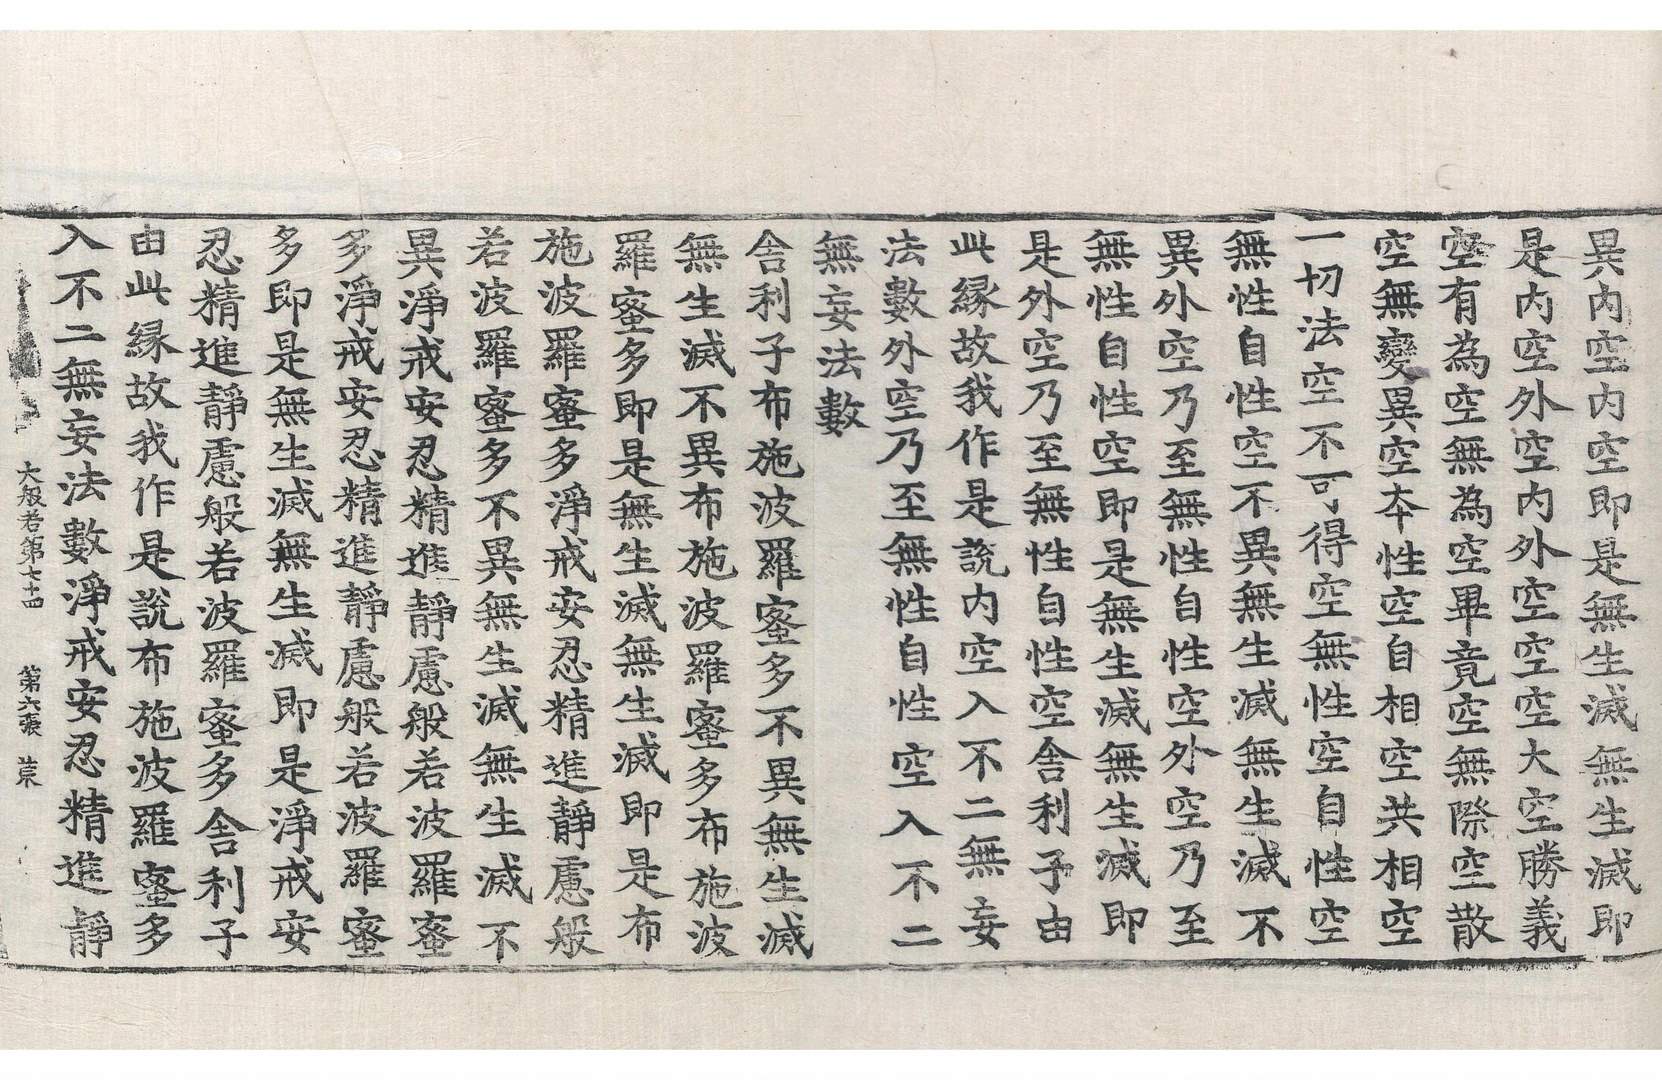 異內空內空即是無生滅無生滅即
是內空外空內外空空空大空勝義
空有為空無為空畢竟空無際空散
空無變異空本性空自相空共相空
一切法空不可得空無性空自性空
無性自性空不異無生滅無生滅不
異外空乃至無性自性空外空乃至
無性自性空即是無生滅無生滅即
是外空乃至無性自性空舍利子由
此緣故我作是說內空入不二無妄
法數外空乃至無性自性空入不二
無妄法數
舍利子布施波羅蜜多不異無生滅
無生滅不異布施波羅蜜多布施波
羅蜜多即是無生滅無生滅即是布
施波羅蜜多淨戒安忍精進靜慮般
若波羅蜜多不異無生滅無生滅不
異淨戒安忍精進靜慮般若波羅蜜
多淨戒安忍精進靜慮般若波羅蜜
多即是無生滅無生滅即是淨戒安
忍精進靜慮般若波羅蜜多舍利子
由此緣故我作是說布施波羅蜜多
入不二無妄法數淨戒安忍精進靜
大般若第七十四 第六張 菜